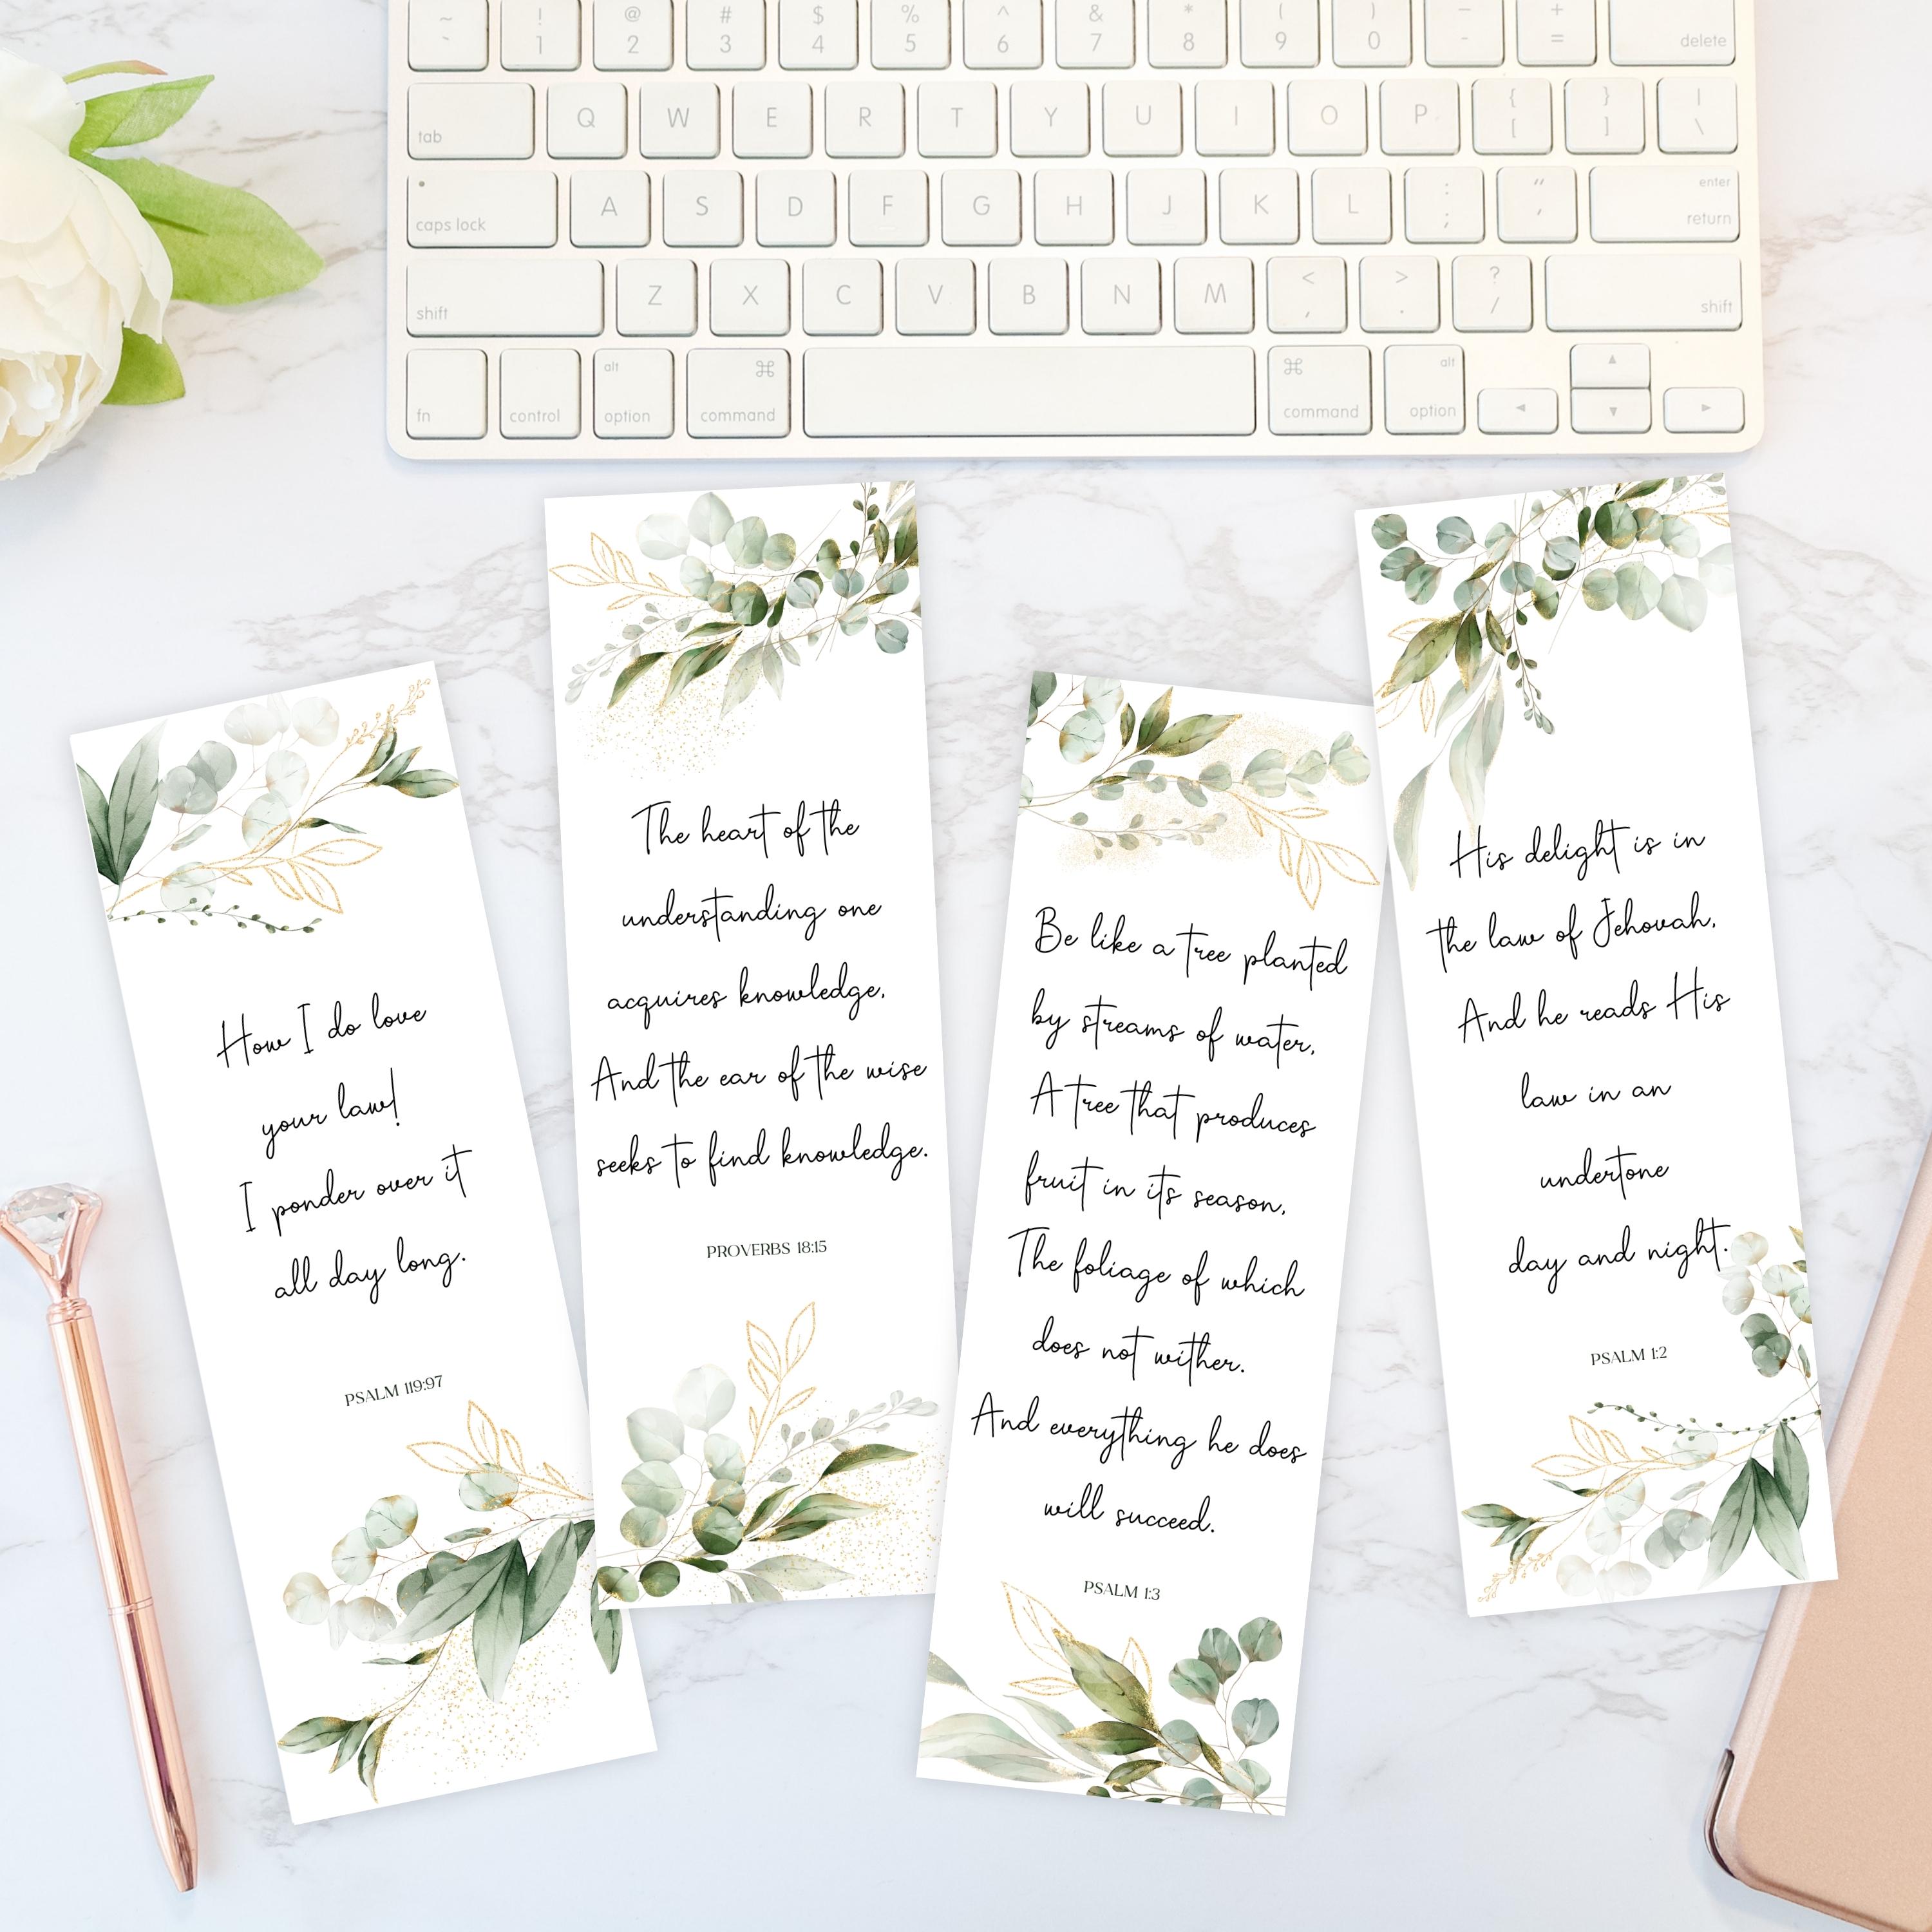 ~ ! @ # $ % ^ & * ( ) _ +
` 1 2 3 4 5 6 7 8 9 0 - = delete
tab Q W E R T Y U I O P { [ } ] | \
caps lock A S D F G H J K L : ; " ' enter return
shift Z X C V B N M < , > . ? / shift
fn control alt option ⌘ command ⌘ command alt option ◀ ▲ ▼ ▶
How I do love
your law!
I ponder over it
all day long.
PSALM 119:97
The heart of the
understanding one
acquires knowledge,
And the ear of the wise
seeks to find knowledge.
PROVERBS 18:15
Be like a tree planted
by streams of water,
A tree that produces
fruit in its season,
The foliage of which
does not wither.
And everything he does
will succeed.
PSALM 1:3
His delight is in
the law of Jehovah,
And he reads His
law in an
undertone
day and night.
PSALM 1:2